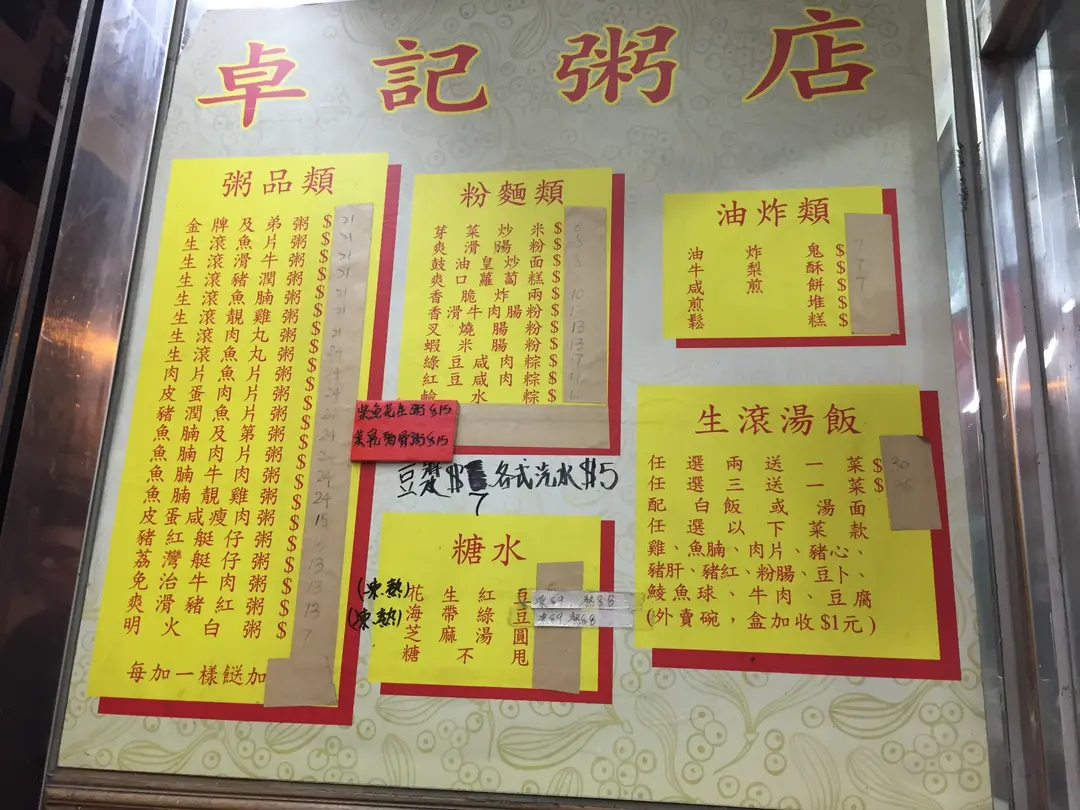 卓記粥店
粥品類
金牌及弟粥$ 21
生滾魚片粥$ 21
生滾滑牛粥$ 21
生滾豬潤粥$
生滾魚腩粥$ 21
生滾靚雞粥$
生滾肉丸粥$ 21
生滾魚丸粥$
肉片魚片粥$ 24
皮蛋肉片粥$
豬潤肉片粥$ 24
魚腩及第粥$
魚腩肉片粥$ 24
魚腩牛粥$
魚腩靚雞粥$ 24
皮蛋咸瘦肉粥$ 15
豬紅艇仔粥$
荔灣艇仔粥$ 13
免治牛肉粥$ 13
爽滑豬紅粥$ 13
明火白粥$ 7
每加一樣餸加
粉麵類
芽菜炒米$
爽滑腸粉$
鼓油皇炒面$ 8
爽口蘿蔔糕$
香脆炸兩$ 10
香滑牛肉腸粉$
叉燒腸粉$ 13
蝦米腸粉$ 13
綠豆咸肉粽$
紅豆咸肉粽$
水粽$
柴魚花生粥$15
菜乾豬骨粥$15
豆漿$7 各式汽水$5
糖水
(凍.熱)花生紅豆 凍$9 熱$8
(凍.熱)海帶綠豆 凍$9 熱$8
芝麻湯圓
糖不甩
油炸類
油炸鬼$ 7
牛脷酥$ 7
咸煎餅$ 7
煎堆$
鬆糕$
生滾湯飯
任選兩送一菜$ 30
任選三送一菜$ 36
配白飯或湯面
任選以下菜款
雞、魚腩、肉片、豬心、
豬肝、豬紅、粉腸、豆卜、
鯪魚球、牛肉、豆腐
(外賣碗，盒加收$1元)